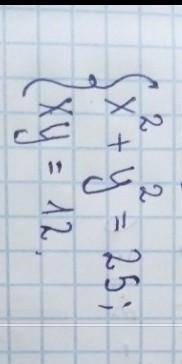 x² + y² = 25;
xy = 12.